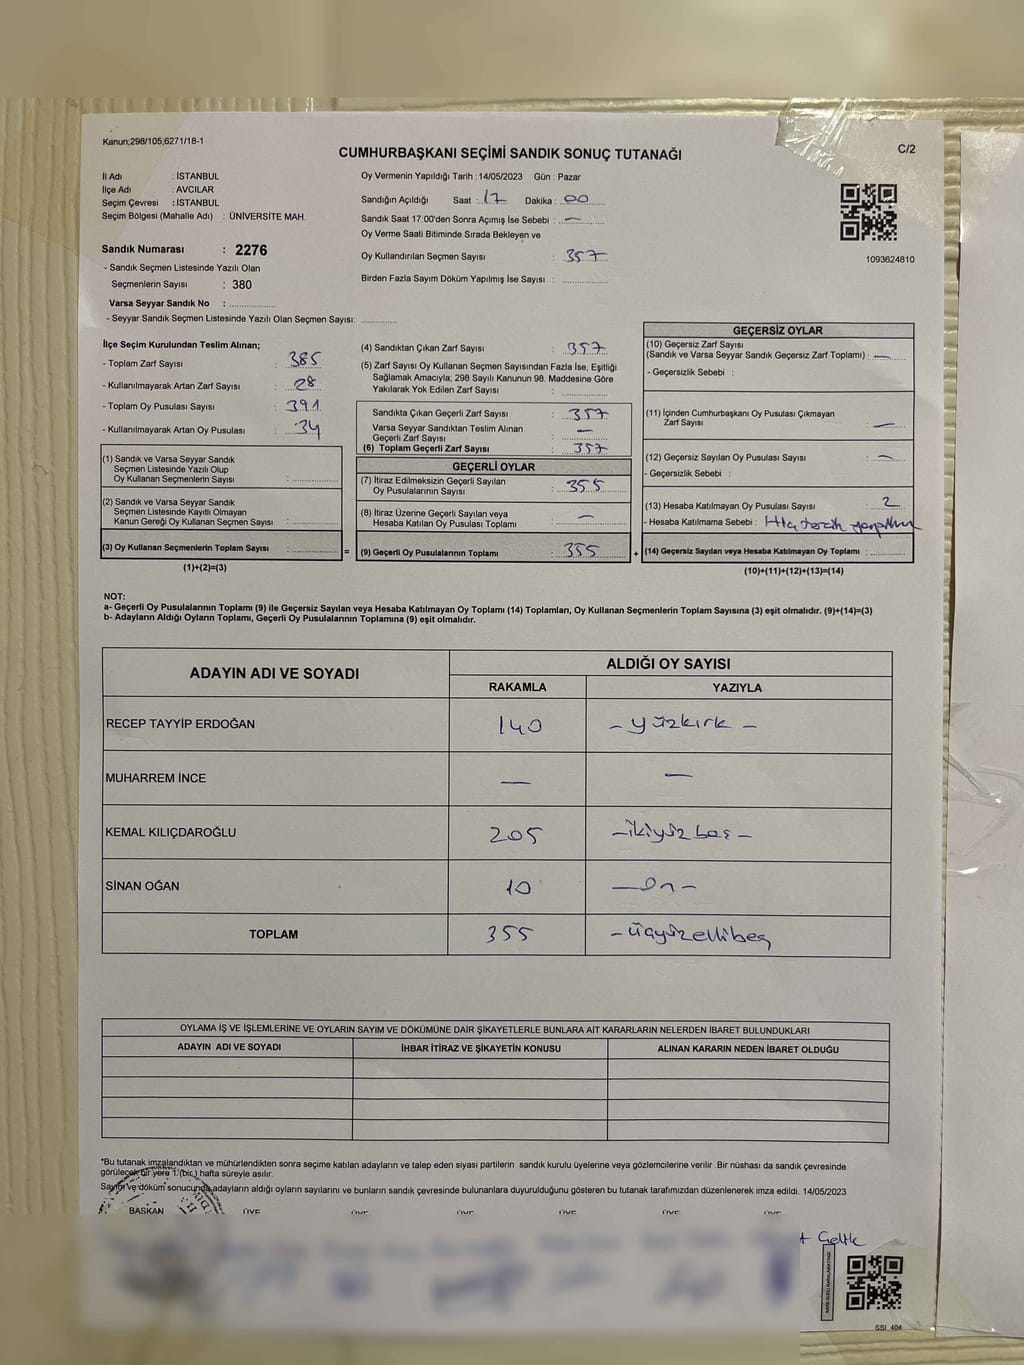 Kanun;298/105,6271/18-1
C/2
CUMHURBAŞKANI SEÇİMİ SANDIK SONUÇ TUTANAĞI
İl Adı : İSTANBUL
İlçe Adı : AVCILAR
Seçim Çevresi : İSTANBUL
Seçim Bölgesi (Mahalle Adı) : ÜNİVERSİTE MAH.
Sandık Numarası : 2276
- Sandık Seçmen Listesinde Yazılı Olan
Seçmenlerin Sayısı : 380
Varsa Seyyar Sandık No :
- Seyyar Sandık Seçmen Listesinde Yazılı Olan Seçmen Sayısı:
Oy Vermenin Yapıldığı Tarih : 14/05/2023 Gün : Pazar
Sandığın Açıldığı Saat : 17 Dakika : 00
Sandık Saat 17:00'den Sonra Açımış İse Sebebi : —
Oy Verme Saati Bitiminde Sırada Bekleyen ve
Oy Kullandırılan Seçmen Sayısı : 357
Birden Fazla Sayım Döküm Yapılmış İse Sayısı :
1093624810
İlçe Seçim Kurulundan Teslim Alınan;
- Toplam Zarf Sayısı : 385
- Kullanılmayarak Artan Zarf Sayısı : 28
- Toplam Oy Pusulası Sayısı : 391
- Kullanılmayarak Artan Oy Pusulası : 34
(1) Sandık ve Varsa Seyyar Sandık
Seçmen Listesinde Yazılı Olup
Oy Kullanan Seçmenlerin Sayısı :
(2) Sandık ve Varsa Seyyar Sandık
Seçmen Listesinde Kayıtlı Olmayan
Kanun Gereği Oy Kullanan Seçmen Sayısı :
(3) Oy Kullanan Seçmenlerin Toplam Sayısı :
(1)+(2)=(3)
=
(4) Sandıktan Çıkan Zarf Sayısı : 357
(5) Zarf Sayısı Oy Kullanan Seçmen Sayısından Fazla İse, Eşitliği
Sağlamak Amacıyla; 298 Sayılı Kanunun 98. Maddesine Göre
Yakılarak Yok Edilen Zarf Sayısı :
Sandıkta Çıkan Geçerli Zarf Sayısı : 357
Varsa Seyyar Sandıktan Teslim Alınan
Geçerli Zarf Sayısı : —
(6) Toplam Geçerli Zarf Sayısı : 357
GEÇERLİ OYLAR
(7) İtiraz Edilmeksizin Geçerli Sayılan
Oy Pusulalarının Sayısı : 355
(8) İtiraz Üzerine Geçerli Sayılan veya
Hesaba Katılan Oy Pusulası Toplamı : —
(9) Geçerli Oy Pusulalarının Toplamı : 355
+
GEÇERSİZ OYLAR
(10) Geçersiz Zarf Sayısı
(Sandık ve Varsa Seyyar Sandık Geçersiz Zarf Toplamı) : —
- Geçersizlik Sebebi :
(11) İçinden Cumhurbaşkanı Oy Pusulası Çıkmayan
Zarf Sayısı : —
(12) Geçersiz Sayılan Oy Pusulası Sayısı : —
- Geçersizlik Sebebi :
(13) Hesaba Katılmayan Oy Pusulası Sayısı : 2
- Hesaba Katılmama Sebebi :
(14) Geçersiz Sayılan veya Hesaba Katılmayan Oy Toplamı :
(10)+(11)+(12)+(13)=(14)
NOT:
a- Geçerli Oy Pusulalarının Toplamı (9) ile Geçersiz Sayılan veya Hesaba Katılmayan Oy Toplamı (14) Toplamları, Oy Kullanan Seçmenlerin Toplam Sayısına (3) eşit olmalıdır. (9)+(14)=(3)
b- Adayların Aldığı Oyların Toplamı, Geçerli Oy Pusulalarının Toplamına (9) eşit olmalıdır.
ADAYIN ADI VE SOYADI
ALDIĞI OY SAYISI
RAKAMLA YAZIYLA
RECEP TAYYİP ERDOĞAN 140 - yüzkırk -
MUHARREM İNCE — —
KEMAL KILIÇDAROĞLU 205 - ikiyüzbeş -
SİNAN OĞAN 10 - On -
TOPLAM 355 - üçyüzellibeş
OYLAMA İŞ VE İŞLEMLERİNE VE OYLARIN SAYIM VE DÖKÜMÜNE DAİR ŞİKAYETLERLE BUNLARA AİT KARARLARIN NELERDEN İBARET BULUNDUKLARI
ADAYIN ADI VE SOYADI İHBAR İTİRAZ VE ŞİKAYETİN KONUSU ALINAN KARARIN NEDEN İBARET OLDUĞU
*Bu tutanak imzalandıktan ve mühürlendikten sonra seçime katılan adayların ve talep eden siyasi partilerin sandık kurulu üyelerine veya gözlemcilerine verilir .Bir nüshası da sandık çevresinde
görülecek bir yere 1.(bir.) hafta süreyle asılır.
Sayım ve döküm sonucunda adayların aldığı oyların sayılarını ve bunların sandık çevresinde bulunanlara duyurulduğunu gösteren bu tutanak tarafımızdan düzenlenerek imza edildi. 14/05/2023
BAŞKAN ÜYE ÜYE ÜYE ÜYE ÜYE ÜYE
SSI_404